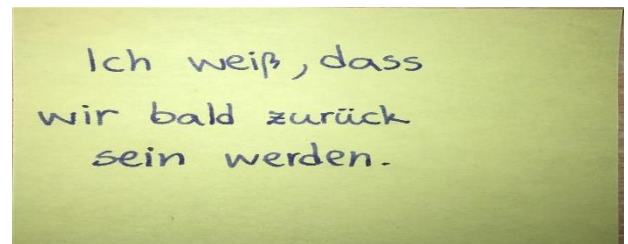 Ich weiß, dass
wir bald zurück
sein werden.